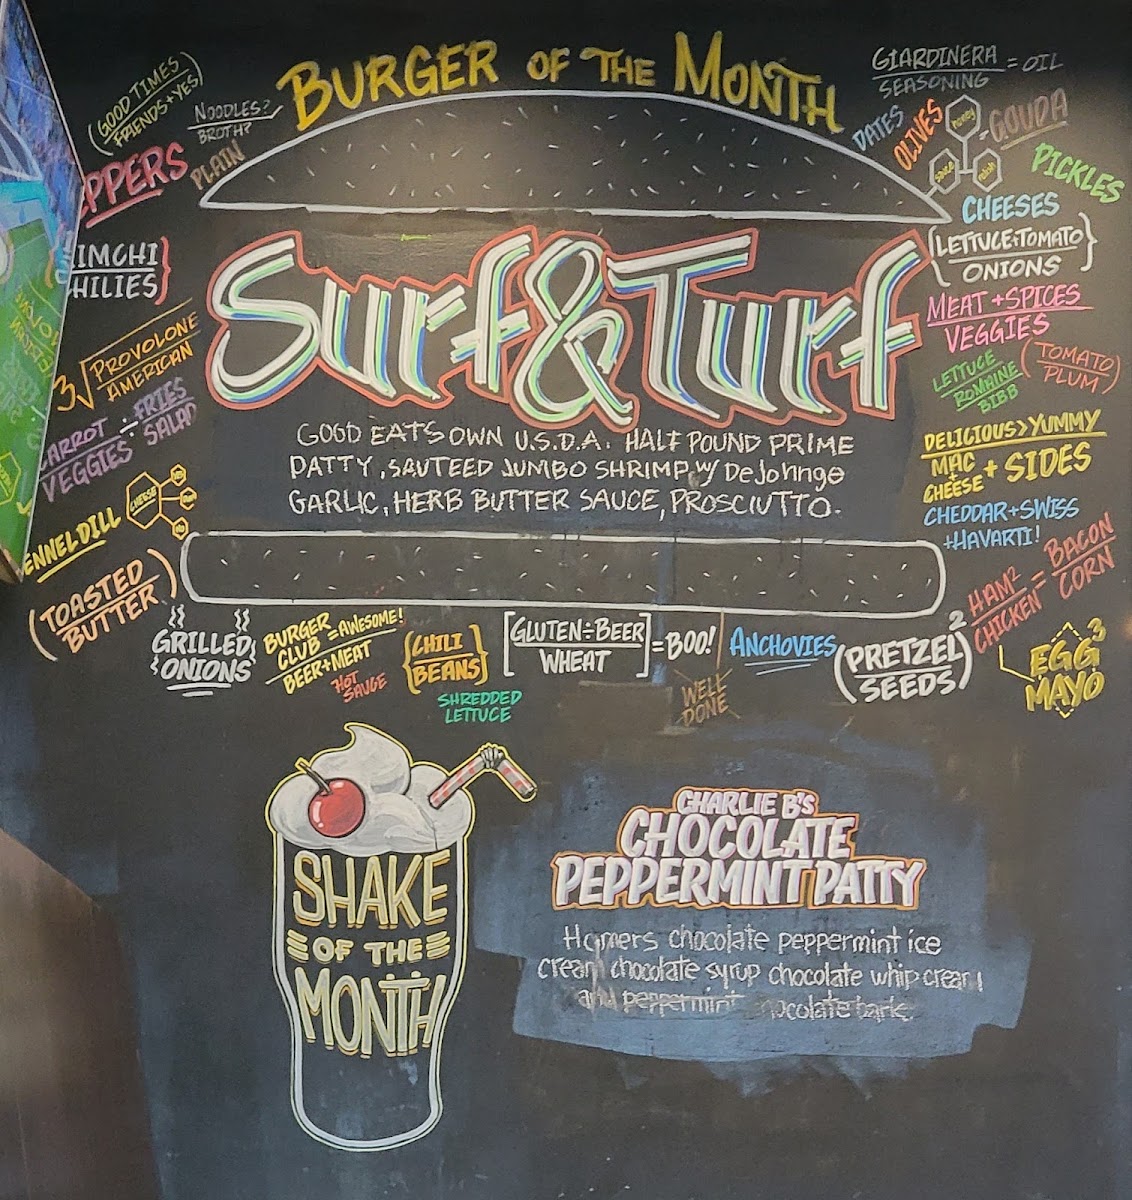 BURGER OF THE MONTH
(GOOD TIMES
FRIENDS+YES)
NOODLES?
BROTH?
PLAIN
PPERS
IMCHI
HILIES}
3√PROVOLONE
AMERICAN
ARROT ÷ FRIES
VEGGIES SALAD
CHEESE
ENNEL DILL
(TOASTED
BUTTER)
GIARDINERA = OIL
SEASONING
DATES
OLIVES
honey
sauce
relish
-GOUDA
PICKLES
CHEESES
(LETTUCE+TOMATO
ONIONS}
MEAT+SPICES
VEGGIES
LETTUCE
ROMAINE
BIBB
(TOMATO
PLUM)
DELICIOUS>YUMMY
MAC
CHEESE + SIDES
CHEDDAR+SWISS
+HAVARTI!
HAM² = BACON
CHICKEN CORN
EGG³
MAYO
Surf&Turf
GOOD EATS OWN U.S.D.A. HALF POUND PRIME
PATTY, SAUTEED JUMBO SHRIMP, W/ DeJohnge
GARLIC, HERB BUTTER SAUCE, PROSCIUTTO.
{GRILLED}
{ONIONS}
BURGER
CLUB = AWESOME!
BEER+MEAT
HOT
SAUCE
{CHILI
BEANS}
SHREDDED
LETTUCE
[GLUTEN÷BEER
WHEAT]=BOO!
WELL
DONE
ANCHOVIES
(PRETZEL
SEEDS)²
SHAKE
OF THE
MONTH
CHARLIE B'S
CHOCOLATE
PEPPERMINT PATTY
Homers chocolate peppermint ice
cream chocolate syrup chocolate whip cream
and peppermint chocolate bark.